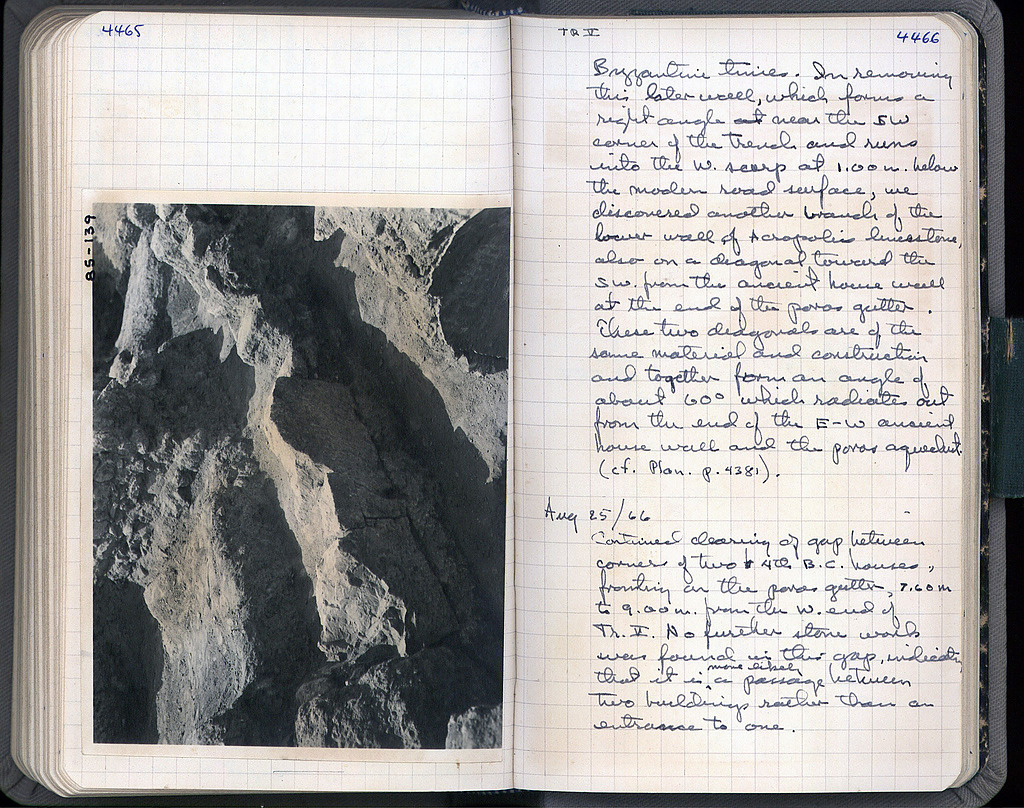 4465
85-139
TR V
4466
Byzantine times. In removing
this later wall, which forms a
right angle at near the SW
corner of the trench and runs
into the W. scarp at 1.00 m. below
the modern road surface, we
discovered another branch of the
lower wall of Acropolis limestone,
also on a diagonal toward the
SW. from the ancient house wall
at the end of the poros gutter.
These two diagonals are of the
same material and construction
and together form an angle of
about 60° which radiates out
from the end of the E-W ancient
house wall and the poros aqueduct.
(cf. Plan. p. 4381).
Aug 25/66
Continued clearing of gap between
corners of two 4th B.C. houses,
fronting on the poros gutter, 7.60 m
to 9.00 m. from the W. end of
Tr. V. No further stone work
was found in this gap, indicating
more likely
that it is a passage between
two buildings rather than an
entrance to one.